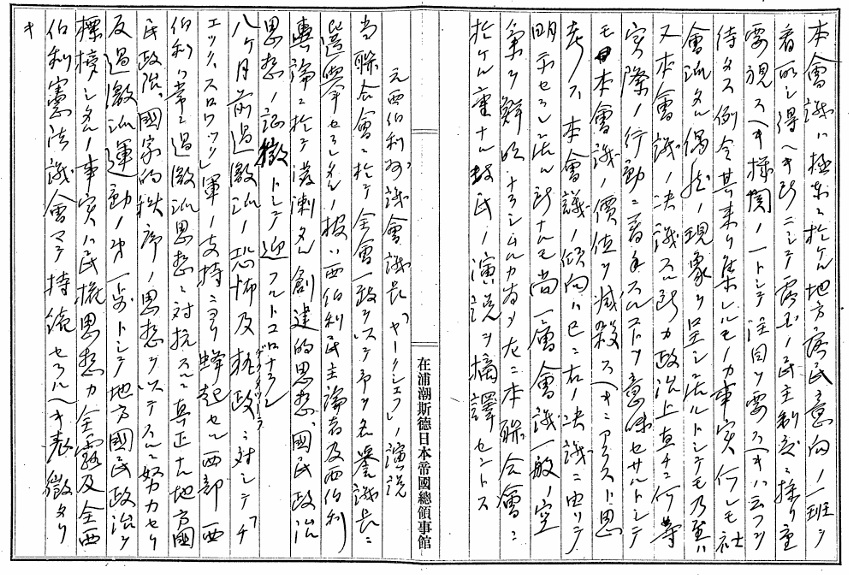 本會議ハ極東ニ於ケル地方庶民意向ノ一斑ヲ
看取シ得ヘキ所ニシテ露國ノ民主制度ニ採リ重
要視スヘキ機関ノ一トシテ注目ヲ要スヘキハ云フヲ
待タス例令其來リ集レルモノカ事実何レモ社
會派タル偶然ノ現象ヲ呈シ居ルトシテモ乃至ハ
又本會議ノ決議スル所カ政治上直チニ何等
実際ノ行動ニ着手スルコトヲ意味セサルトシテ
モ本會議ノ價値ヲ減殺スヘキニアラスト思
考ス本會議ノ傾向ハ已ニ右ノ決議ニ由リテ
明示セラレ居ル所ナルモ尚一層會議一般ノ空
氣ヲ鮮明ナラシムルカ為メ左ニ本聯合會ニ
於ケル重ナル政民ノ演説ヲ摘譯セントス
在浦潮斯德日本帝國總領事館
元西伯利州議會議長「ヤークシェフ」ノ演説
当聯合會ニ於テ全會一致ヲ以テ予ヲ名誉議長ニ
選挙セラレタルノ報ハ西伯利民主論者及西伯利
輿論ニ於テ溌溂タル創建的思想、國民政治
思想ノ記徴トシテ迎フルトコロナラン
八ヶ月前過激派ノ恐怖及執政ニ対シテ「チ
ヂクタツーラ
エック、スロワック」軍ノ支持ニヨリ蜂起セル西部西
伯利ハ常ニ過激派思想ニ対抗スルニ真正ナル地方國
民政治、國家的秩序ノ思想ヲ以テスルニ努力セリ
反過激派運動ノ第一歩トシテ地方國民政治ヲ
標榜シタルノ事実ハ民権思想カ全露及全西
伯利憲法議會マテ持続セラルヘキ表徴タリ
キ